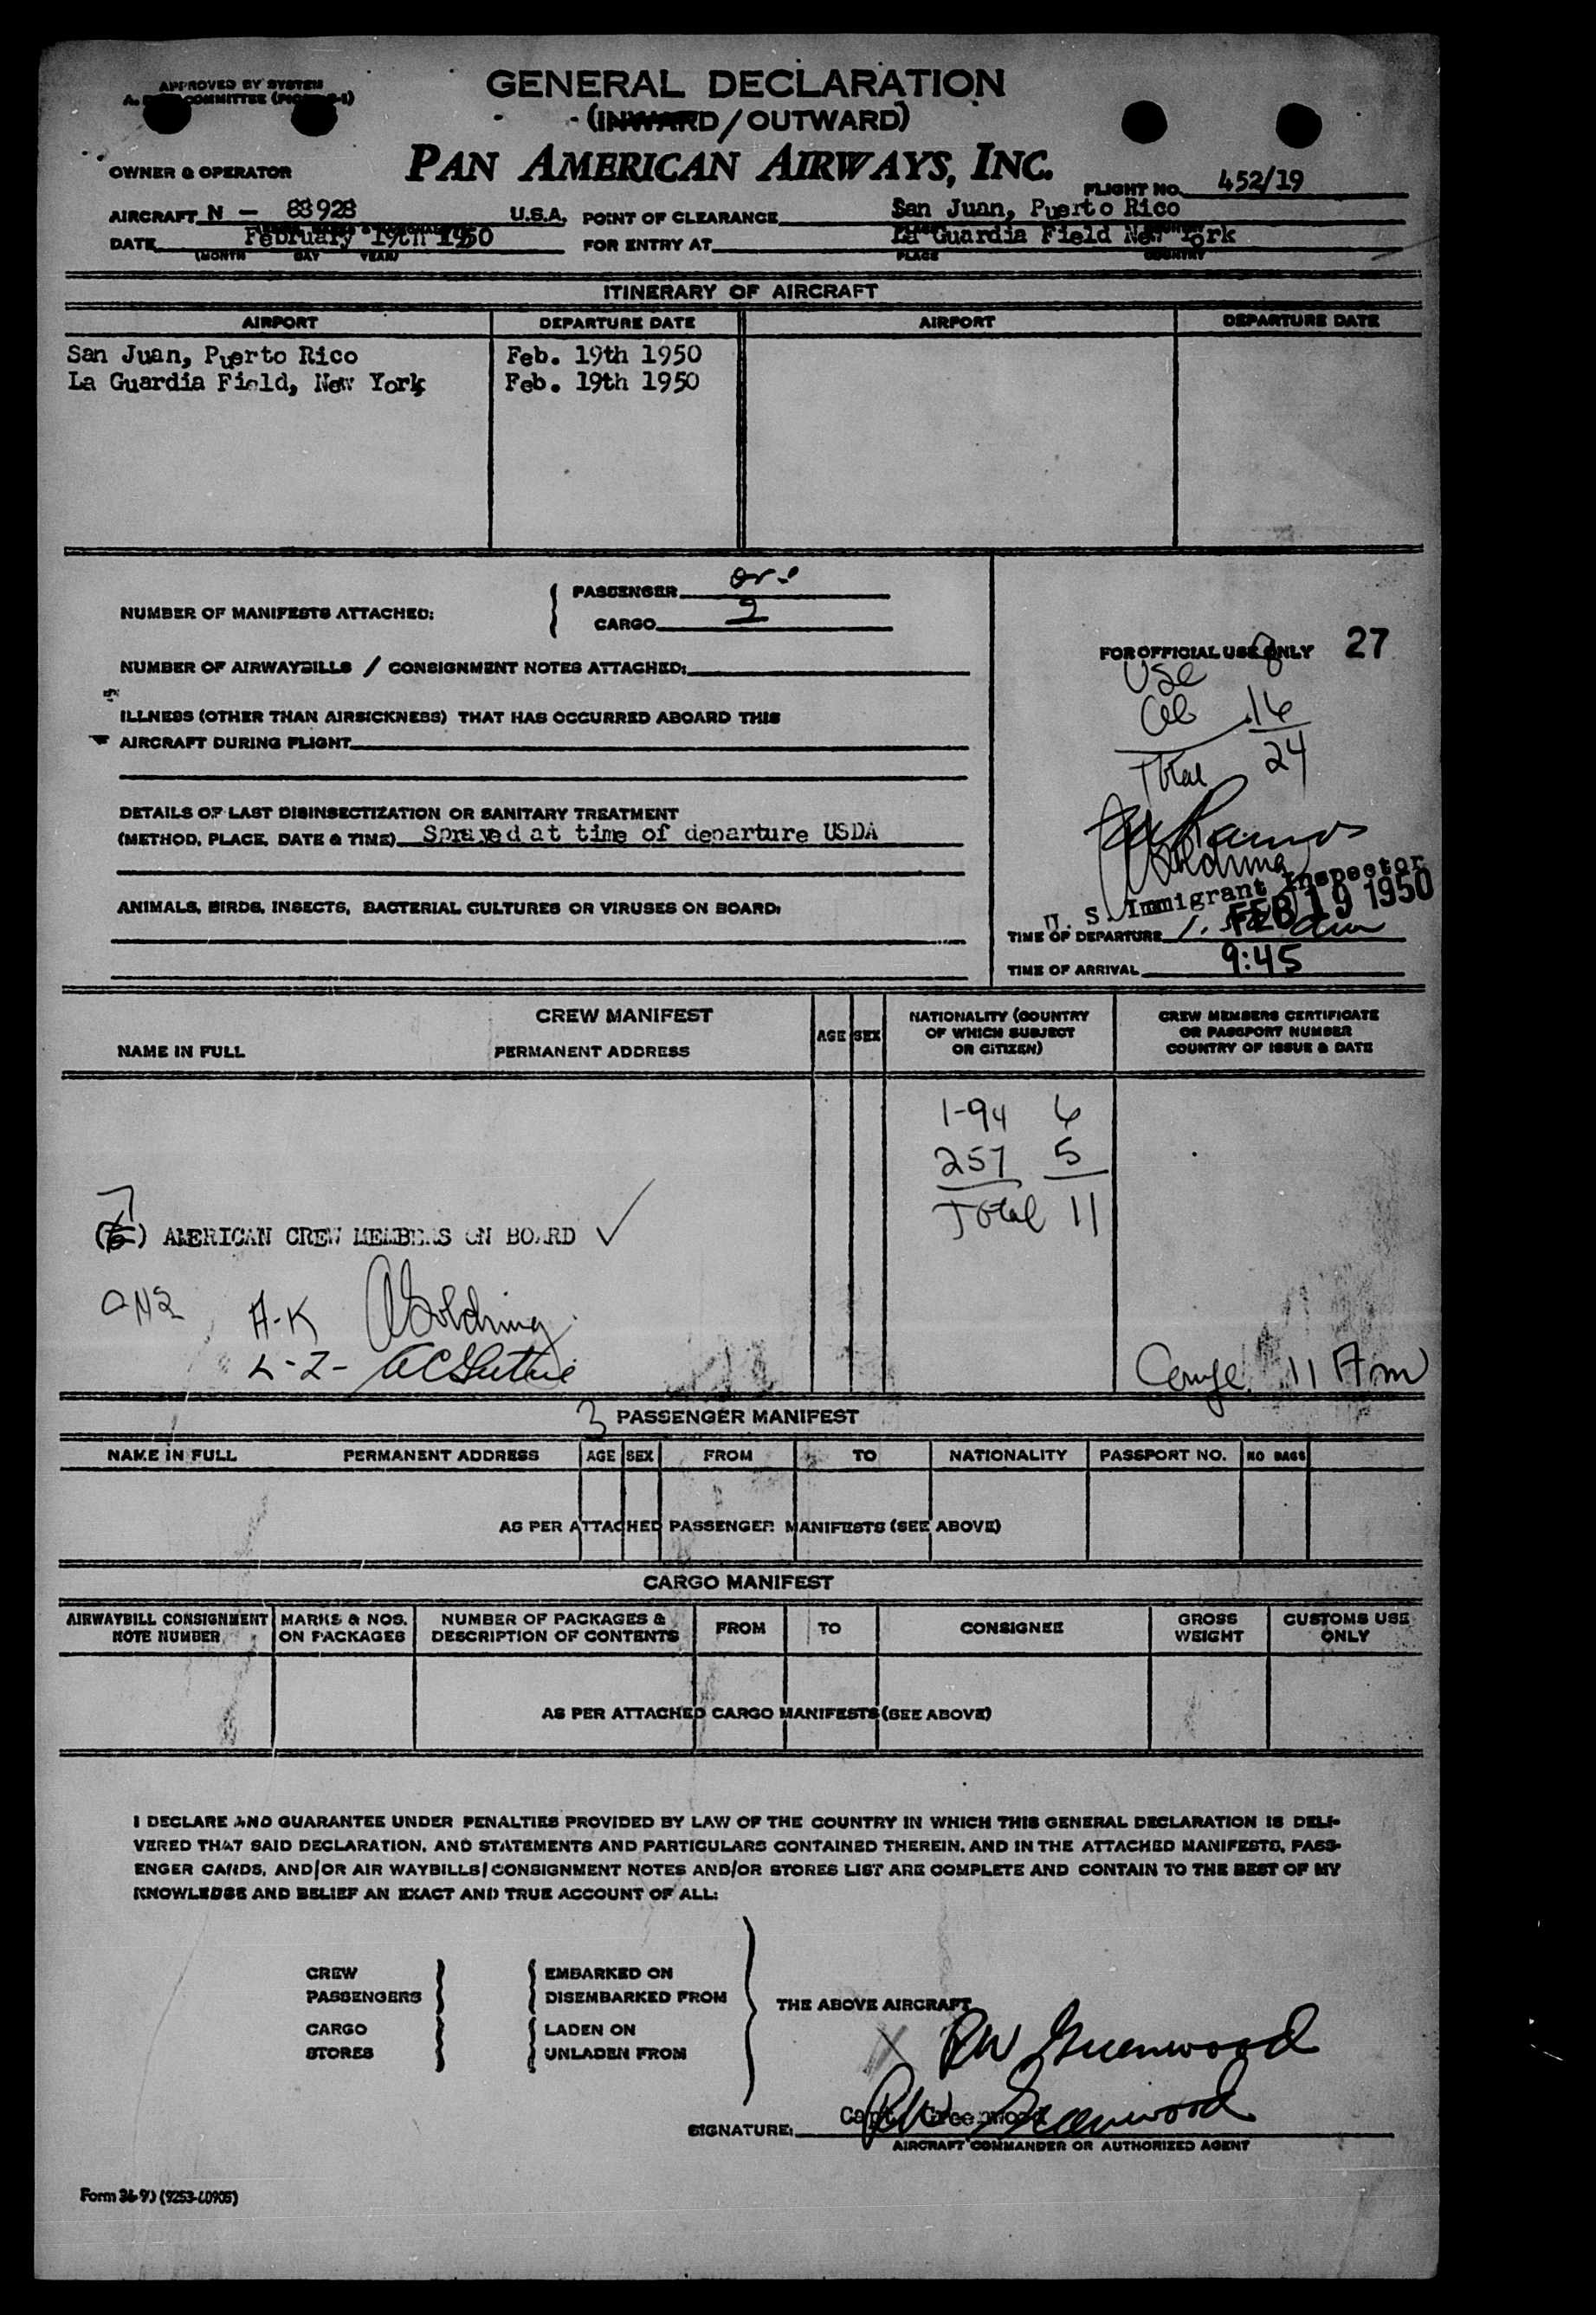 APPROVED BY SYSTEM
COMMITTEE
GENERAL DECLARATION
(INWARD/OUTWARD)
OWNER & OPERATOR PAN AMERICAN AIRWAYS, INC.
FLIGHT NO. 452/19
AIRCRAFT N - 88928 U.S.A. POINT OF CLEARANCE San Juan, Puerto Rico
DATE February 19th 1950 FOR ENTRY AT La Guardia Field New York
(MONTH DAY YEAR) PLACE COUNTRY
ITINERARY OF AIRCRAFT
AIRPORT DEPARTURE DATE AIRPORT DEPARTURE DATE
San Juan, Puerto Rico Feb. 19th 1950
La Guardia Field, New York Feb. 19th 1950
NUMBER OF MANIFESTS ATTACHED:
PASSENGER
CARGO 2
NUMBER OF AIRWAYBILLS / CONSIGNMENT NOTES ATTACHED:
ILLNESS (OTHER THAN AIRSICKNESS) THAT HAS OCCURRED ABOARD THIS
AIRCRAFT DURING FLIGHT
DETAILS OF LAST DISINSECTIZATION OR SANITARY TREATMENT
(METHOD, PLACE, DATE & TIME) Sprayed at time of departure USDA
ANIMALS, BIRDS, INSECTS, BACTERIAL CULTURES OR VIRUSES ON BOARD:
FOR OFFICIAL USE ONLY 27
USC 8
16
Total 24
Ramos
Golding
U. S. Immigrant Inspector
FEB 19 1950
TIME OF DEPARTURE
TIME OF ARRIVAL 9:45
CREW MANIFEST
NAME IN FULL PERMANENT ADDRESS AGE SEX NATIONALITY (COUNTRY
OF WHICH SUBJECT
OR CITIZEN)
CREW MEMBERS CERTIFICATE
OR PASSPORT NUMBER
COUNTRY OF ISSUE & DATE
1-94 6
257 5
Total 11
7
(6) AMERICAN CREW MEMBERS ON BOARD ✓
A-K A Golding
L-Z- AC Guthrie
11 Am
3 PASSENGER MANIFEST
NAME IN FULL PERMANENT ADDRESS AGE SEX FROM TO NATIONALITY PASSPORT NO. NO BAGS
AS PER ATTACHED PASSENGER MANIFESTS (SEE ABOVE)
CARGO MANIFEST
AIRWAYBILL CONSIGNMENT
NOTE NUMBER
MARKS & NOS.
ON PACKAGES
NUMBER OF PACKAGES &
DESCRIPTION OF CONTENTS
FROM TO CONSIGNEE
GROSS
WEIGHT
CUSTOMS USE
ONLY
AS PER ATTACHED CARGO MANIFESTS (SEE ABOVE)
I DECLARE AND GUARANTEE UNDER PENALTIES PROVIDED BY LAW OF THE COUNTRY IN WHICH THIS GENERAL DECLARATION IS DELI-
VERED THAT SAID DECLARATION, AND STATEMENTS AND PARTICULARS CONTAINED THEREIN, AND IN THE ATTACHED MANIFESTS, PASS-
ENGER CARDS, AND/OR AIR WAYBILLS/CONSIGNMENT NOTES AND/OR STORES LIST ARE COMPLETE AND CONTAIN TO THE BEST OF MY
KNOWLEDGE AND BELIEF AN EXACT AND TRUE ACCOUNT OF ALL:
CREW EMBARKED ON
PASSENGERS DISEMBARKED FROM
THE ABOVE AIRCRAFT
CARGO LADEN ON
STORES UNLADEN FROM
RW Greenwood
RW Greenwood
SIGNATURE: Capt. Greenwood
AIRCRAFT COMMANDER OR AUTHORIZED AGENT
Form 36-90 (9253-L0905)